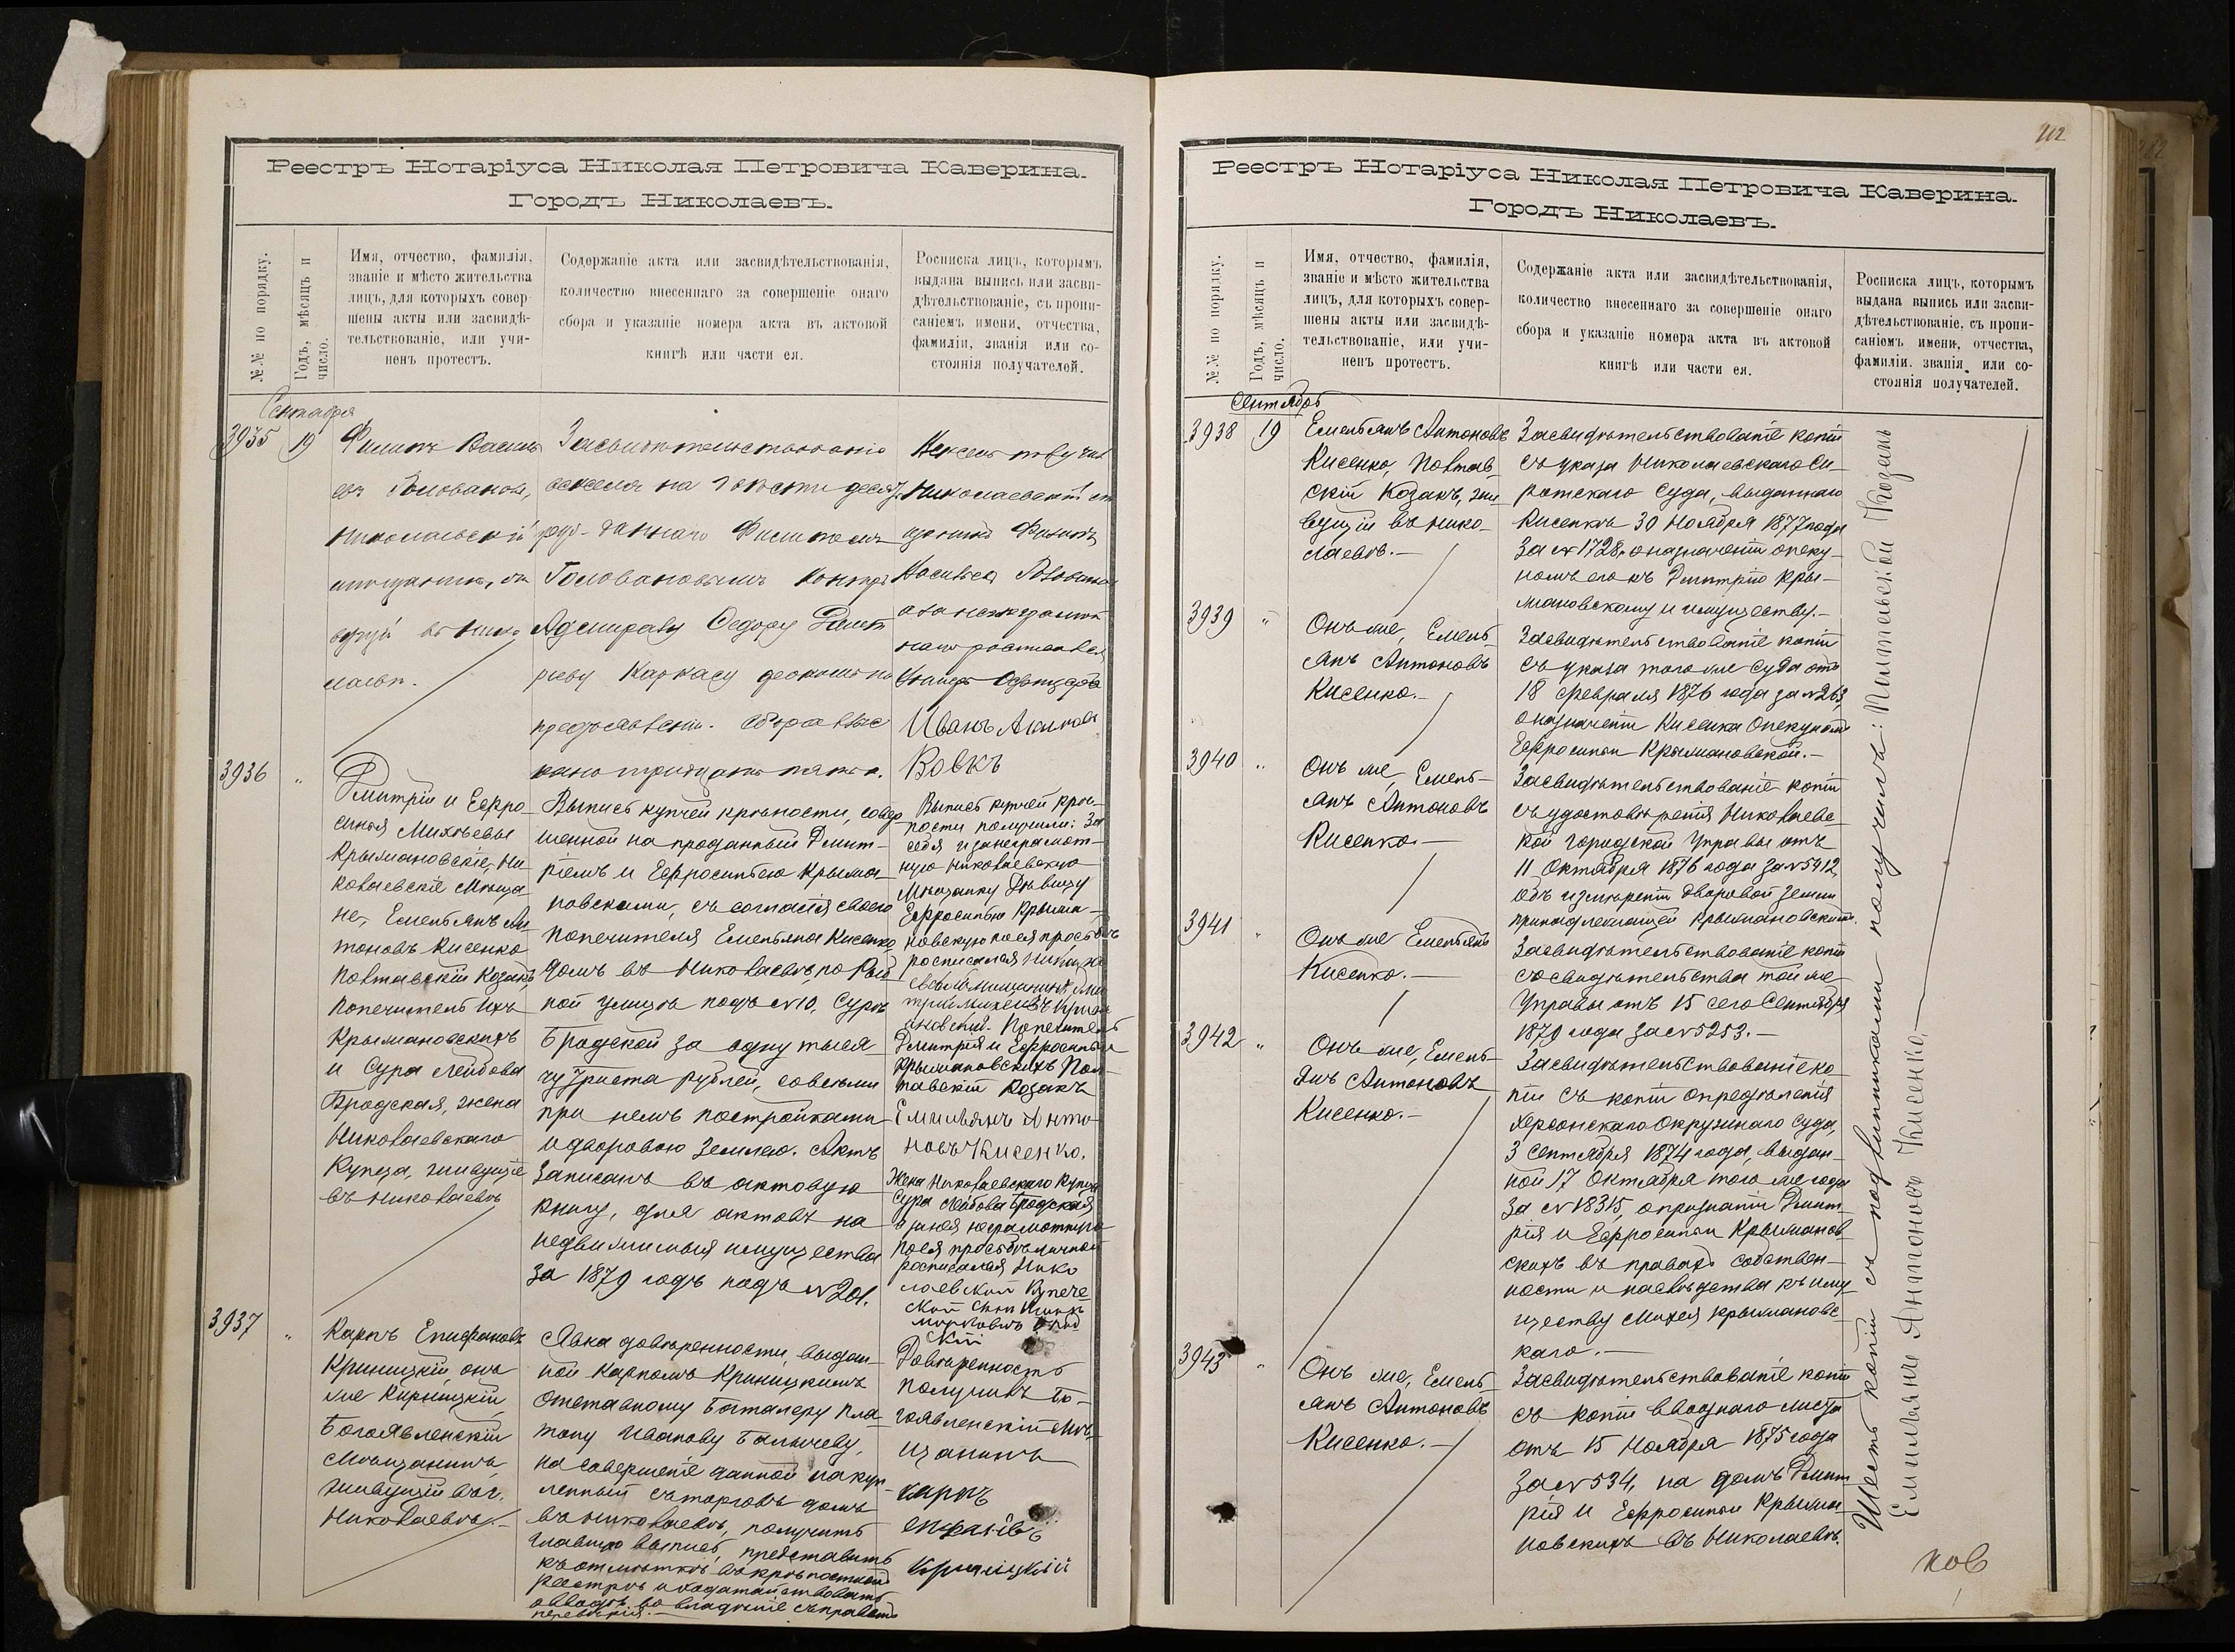 Реестръ Нотаріуса Николая Петровича Каверина.
Городъ Николаевъ.
№№ по порядку.
Годъ, мѣсяцъ и
число.
Имя, отчество, фамилія,
званіе и мѣсто жительства
лицъ, для которыхъ совер-
шены акты или засвидѣ-
тельствованіе, или учи-
ненъ протестъ.
Содержаніе акта или засвидѣтельствованія,
количество внесеннаго за совершеніе онаго
сбора и указаніе номера акта въ актовой
книгѣ или части ея.
Росписка лицъ, которымъ
выдана выпись или засви-
дѣтельствованіе, съ пропи-
саніемъ имени, отчества,
фамиліи, званія или со-
стоянія получателей.
Сентября
3935
19
Филипъ Василь
евъ Головановъ,
Николаевскій
мѣщанинъ, жи
вущій въ Нико
лаевѣ.
Засвидѣтельствованіе
векселя на двѣсти десять
руб. даннаго Филипомъ
Головановымъ Контръ
Адмиралу Федору Дмит
ріеву Каркасу
предъявленія. Сбора внес
но тридцать пять к.
Вексель получилъ
Николаевскій мѣ
щанинъ Филипъ
Васильевъ Головановъ
а за неграмотн
Иванъ
Вовкъ
3936
"
Дмитрій и Евфро
синія Михѣевы
Крымановскіе, Ни
колаевскіе Мѣща
не, Емельянъ Ан
тоновъ Кисенко
Полтавскій Козакъ,
попечитель ихъ
Крымановскихъ
и Сура Лейбова
Бродская, жена
Николаевскаго
Купца, живущіе
въ Николаевѣ
Выпись купчей крѣпости, совер
шенной на проданный Дмит-
ріемъ и Евфросиніею Крыма
новскими, съ согласія своего
попечителя Емельяна Кисенко,
домъ въ Николаевѣ, по Рыб
ной улицѣ подъ № 10, Сурѣ
Бродской за одну тыся
чу триста рублей, со всѣми
при немъ постройками
и дворовою землею. Актъ
записанъ въ актовую
книгу, для актовъ на
недвижимыя имущества
за 1879 годъ подъ № 201.
Выпись купчей крѣ-
пости получили: За
себя и за неграмот-
ную Николаевскую
Мѣщанку Дѣвицу
Евфросинію Крыма-
новскую по ея просьбѣ
росписался Никола
евскій мѣщанинъ Дми
трій Михеевъ Крым
ановскій. Попечитель
Дмитрія и Евфросиніи
Крымановскихъ Пол
тавскій Козакъ
Емильянъ Анто
новъ Кисенко.
Жена Николаевскаго Купца
Сура Лейбова Бродская
а за нея неграмотную
по ея просьбѣ личной
росписался Нико
лаевской Купече
ской сынъ
Брод
скій
3937
"
Карпъ Епифановъ
Криницкій, онъ
же Кирницкій
Богоявленскій
Мѣщанинъ,
живущій въ г.
Николаевѣ.
Явка довѣренности, выдан-
ной Карпомъ Криницкимъ
Отставному Баталеру Пла
тону Иванову Балычеву,
на совершеніе данной на куп-
ленный съ торговъ домъ
въ Николаевѣ, получить
главную выпись, представить
къ отмѣткѣ въ крѣпостной
реестръ и ходатайствовать
о вводѣ во владѣніе съ правомъ
передовѣрія.
Довѣренность
получилъ Бо-
гоявленскій мѣ-
щанинъ
карпъ
епифанівъ
криницкій
212
Реестръ Нотаріуса Николая Петровича Каверина.
Городъ Николаевъ.
№№ по порядку.
Годъ, мѣсяцъ и
число.
Имя, отчество, фамилія,
званіе и мѣсто жительства
лицъ, для которыхъ совер-
шены акты или засвидѣ-
тельствованіе, или учи-
ненъ протестъ.
Содержаніе акта или засвидѣтельствованія,
количество внесеннаго за совершеніе онаго
сбора и указаніе номера акта въ актовой
книгѣ или части ея.
Росписка лицъ, которымъ
выдана выпись или засви-
дѣтельствованіе, съ пропи-
саніемъ имени, отчества,
фамиліи, званія или со-
стоянія получателей.
Сентябрь
3938
19
Емельянъ Антоновъ
Кисенко, Полтав
скій Козакъ, жи
вущій въ Нико-
лаевѣ.—
Засвидѣтельствованіе копіи
съ указа Николаевскаго Си-
ротскаго Суда, выданнаго
Кисенкѣ 30 Ноября 1877 года
за № 1728, о назначеніи опеку-
номъ его къ Дмитрію Кры-
мановскому и имуществу.—
3939
"
Онъ же, Емель
янъ Антоновъ
Кисенко.—
Засвидѣтельствованіе копіи
съ указа того же Суда отъ
18 Февраля 1876 года за № 263
о назначеніи Кисенка Опекуномъ
Евфросиніи Крымановской.—
3940
"
Онъ же, Емель-
янъ Антоновъ
Кисенко—
Засвидѣтельствованіе копіи
съ удостовѣренія Николаевс
кой Городской Управы отъ
11 Октября 1876 года за № 5412,
объ измѣреніи дворовой земли
принадлежащей Крымановскимъ.
3941
"
Онъ же Емельянъ
Кисенко.—
Засвидѣтельствованіе копіи
съ свидѣтельства той же
Управы отъ 15 сего Сентября
1879 года за № 5253.—
3942
"
Онъ же, Емель-
янъ Антоновъ
Кисенко.—
Засвидѣтельствованіе ко
піи съ копіи опредѣленія
Херсонскаго Окружнаго Суда,
3 Сентября 1874 года, выдан-
ной 17 Октября того же года
за № 18315, о признаніи Дмит-
рія и Евфросиніи Крыманов-
скихъ въ правахъ собствен-
ности и наслѣдства къ иму
ществу Михея Крымановс
каго.—
3943
"
Онъ же, Емель
янъ Антоновъ
Кисенко.—
Засвидѣтельствованіе копіи
съ копіи вводнаго листа
отъ 15 Ноября 1875 года
за № 534, на домъ Дмит
рія и Евфросиніи Крыма
новскихъ въ Николаевѣ.
Шесть копій съ подлинниками получилъ: Полтавской Козакъ
Емильянъ Антоновъ Кисенко.—